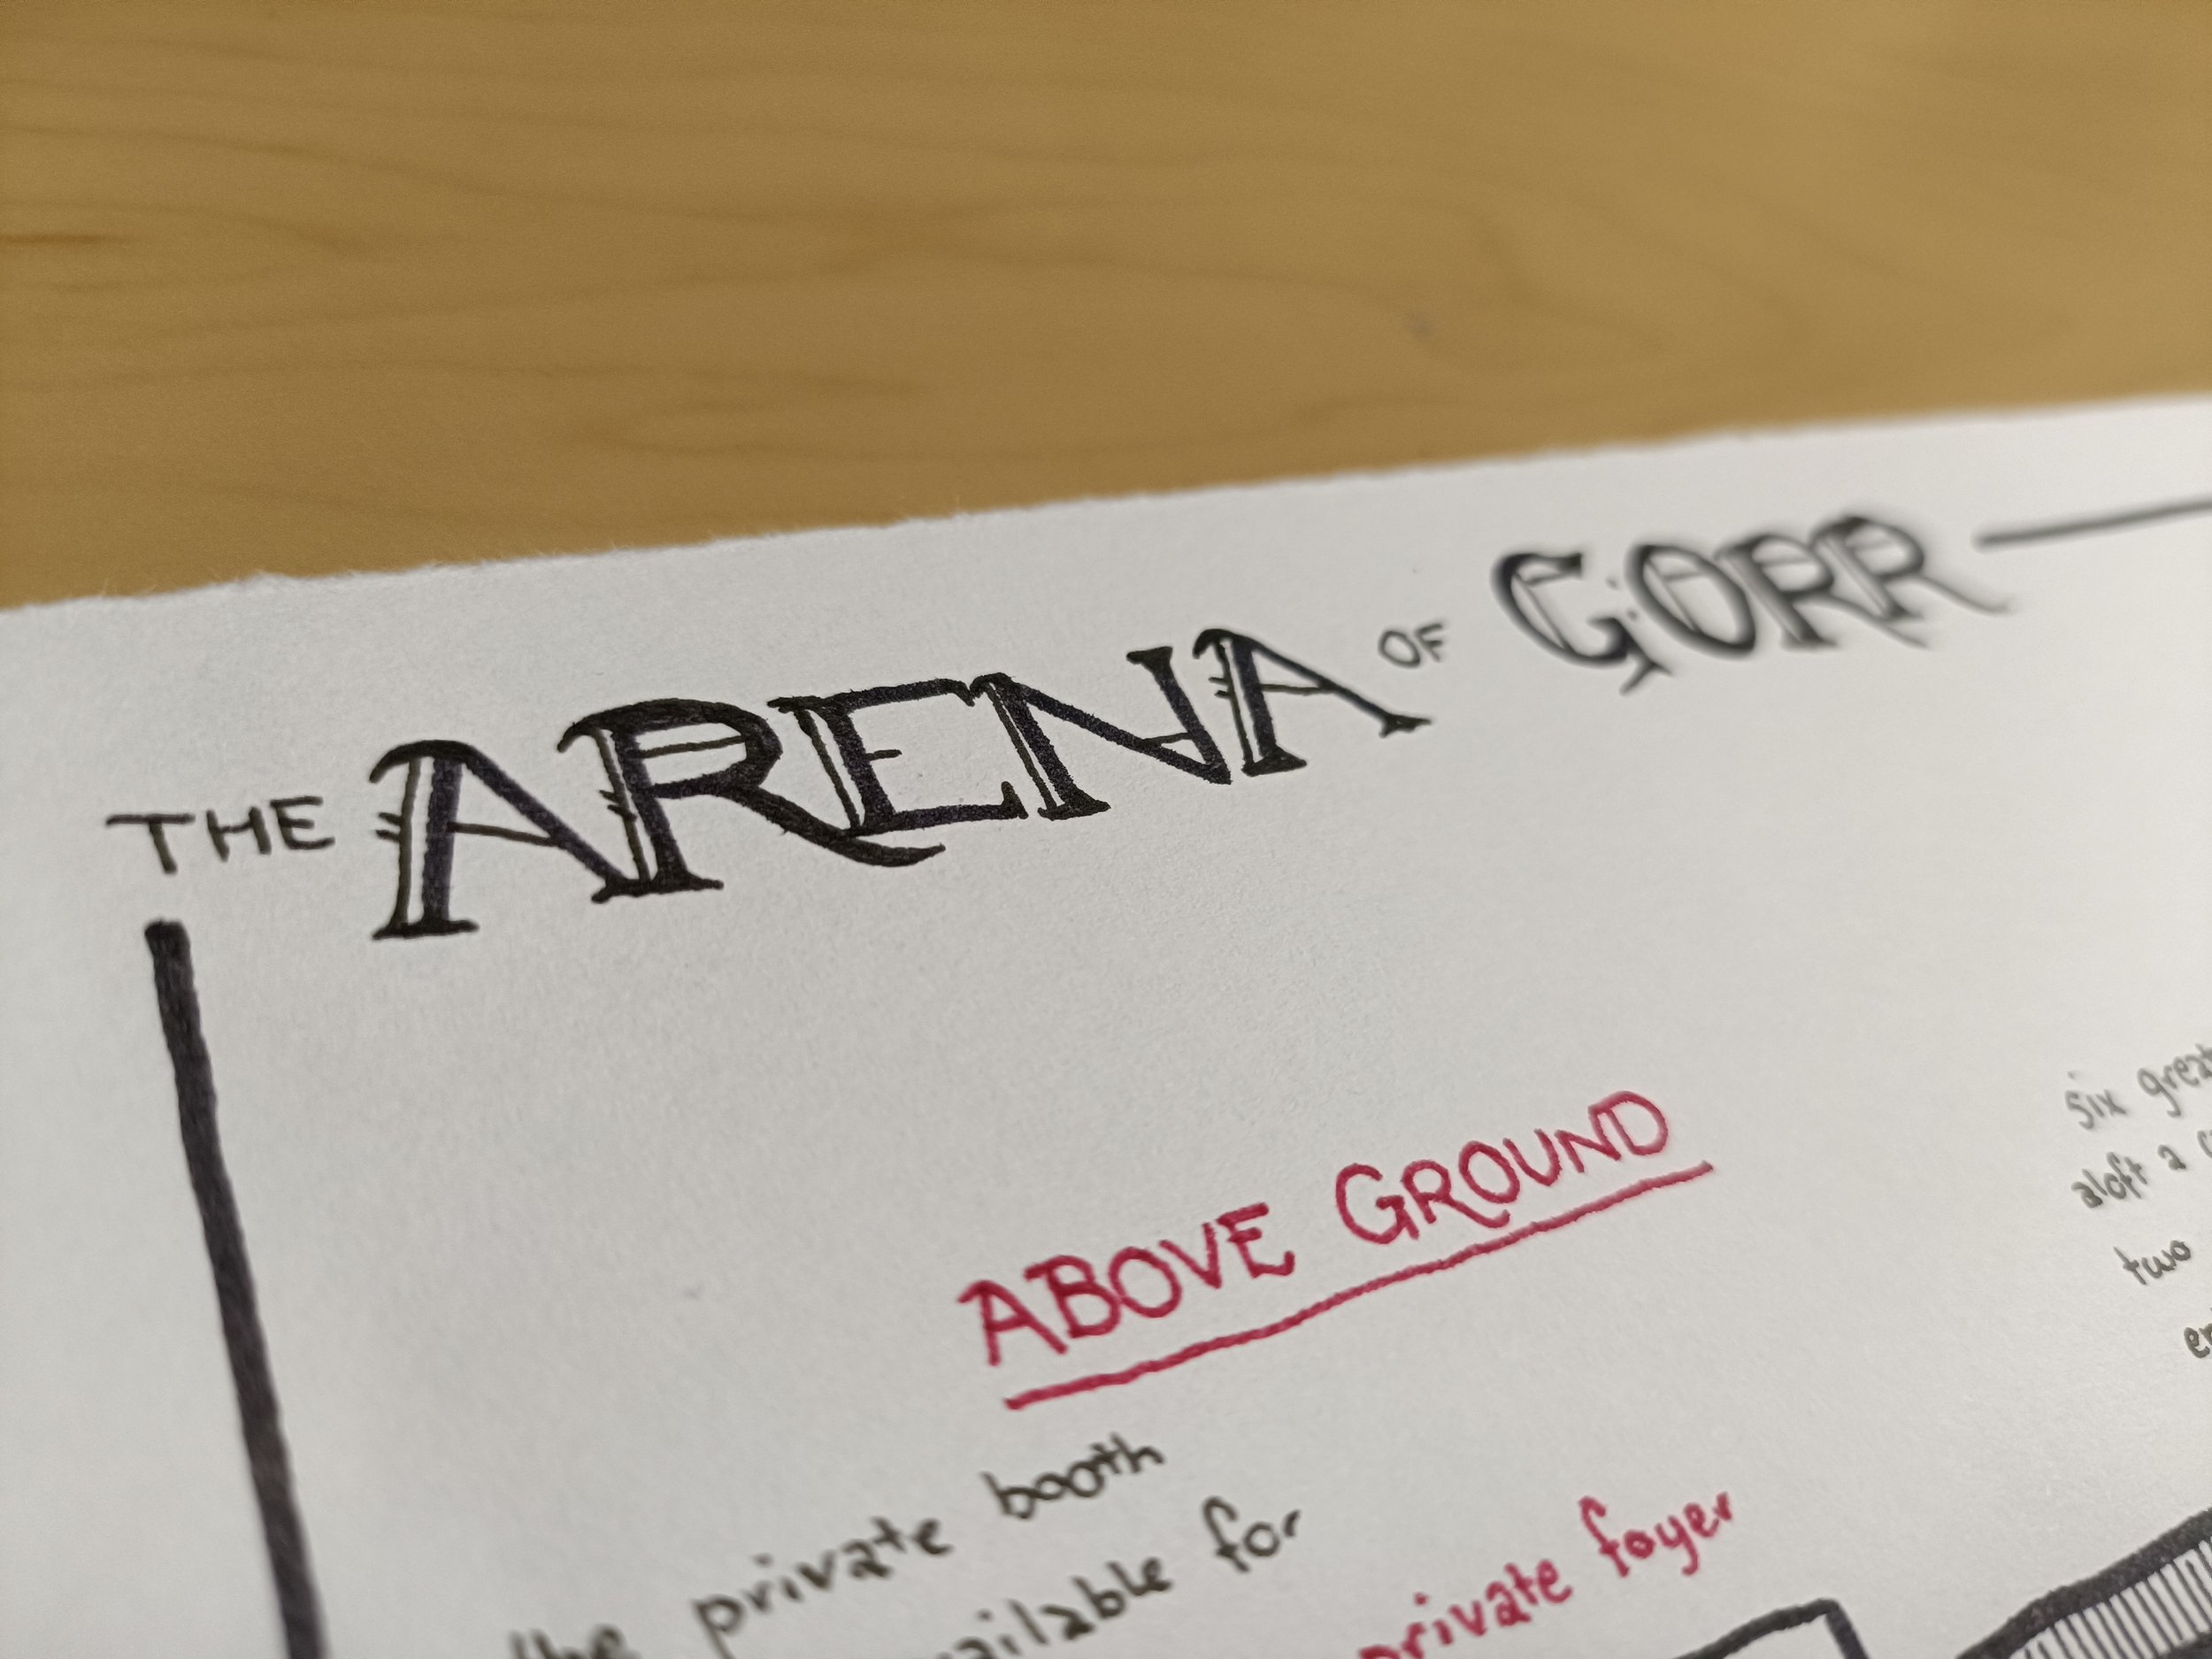 THE ARENA OF GORR
ABOVE GROUND
the private booth
available for
private foyer
six great
aloft a
two